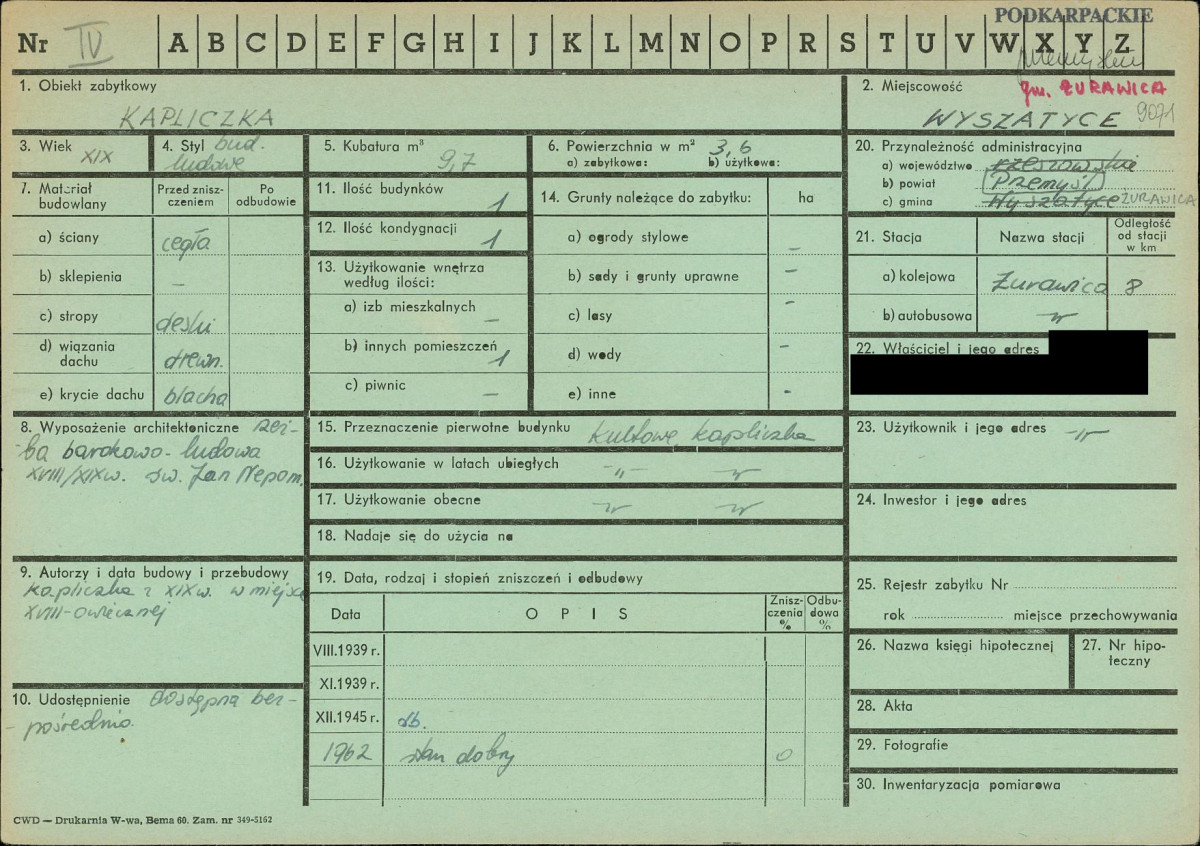 PODKARPACKIE
Nr IV A B C D E F G H I J K L M N O P R S T U V W X Y Z
1. Obiekt zabytkowy
KAPLICZKA
2. Miejscowość
gm. ŻURAWICA
WYSZATYCE 9071
3. Wiek
XIX
4. Styl bud.
ludowe
5. Kubatura m³
9,7
6. Powierzchnia w m² 3,6
a) zabytkowa: b) użytkowa:
20. Przynależność administracyjna
a) województwo rzeszowskie
b) powiat Przemyśl
c) gmina Wyszatyce ŻURAWICA
7. Materiał budowlany
Przed zniszczeniem
Po odbudowie
a) ściany cegła
b) sklepienia –
c) stropy deski
d) wiązania dachu drewn.
e) krycie dachu blacha
11. Ilość budynków 1
12. Ilość kondygnacji 1
13. Użytkowanie wnętrza
według ilości:
a) izb mieszkalnych –
b) innych pomieszczeń 1
c) piwnic –
14. Grunty należące do zabytku: ha
a) ogrody stylowe –
b) sady i grunty uprawne –
c) lasy –
d) wody –
e) inne -
21. Stacja
Nazwa stacji
Odległość
od stacji
w km
a) kolejowa Żurawica 8
b) autobusowa -"-
22. Właściciel i jego adres
8. Wyposażenie architektoniczne rzeź-
ba barokowo-ludowa
XVIII/XIX w. św. Jan Nepom.
15. Przeznaczenie pierwotne budynku kultowe, kapliczka
16. Użytkowanie w latach ubiegłych -"- -"-
17. Użytkowanie obecne -"- -"-
18. Nadaje się do użycia na
23. Użytkownik i jego adres -"-
24. Inwestor i jego adres
9. Autorzy i data budowy i przebudowy
kapliczka z XIX w. w miejsce
XVIII-owiecznej
19. Data, rodzaj i stopień zniszczeń i odbudowy
Data
O P I S
Zniszczenia %
Odbudowa %
VIII.1939 r.
XI.1939 r.
XII.1945 r. db.
1962 stan dobry 0
10. Udostępnienie dostępna bez-
- pośrednio.
25. Rejestr zabytku Nr
rok miejsce przechowywania
26. Nazwa księgi hipotecznej
27. Nr hipo-
teczny
28. Akta
29. Fotografie
30. Inwentaryzacja pomiarowa
CWD — Drukarnia W-wa, Bema 60. Zam. nr 349-5162